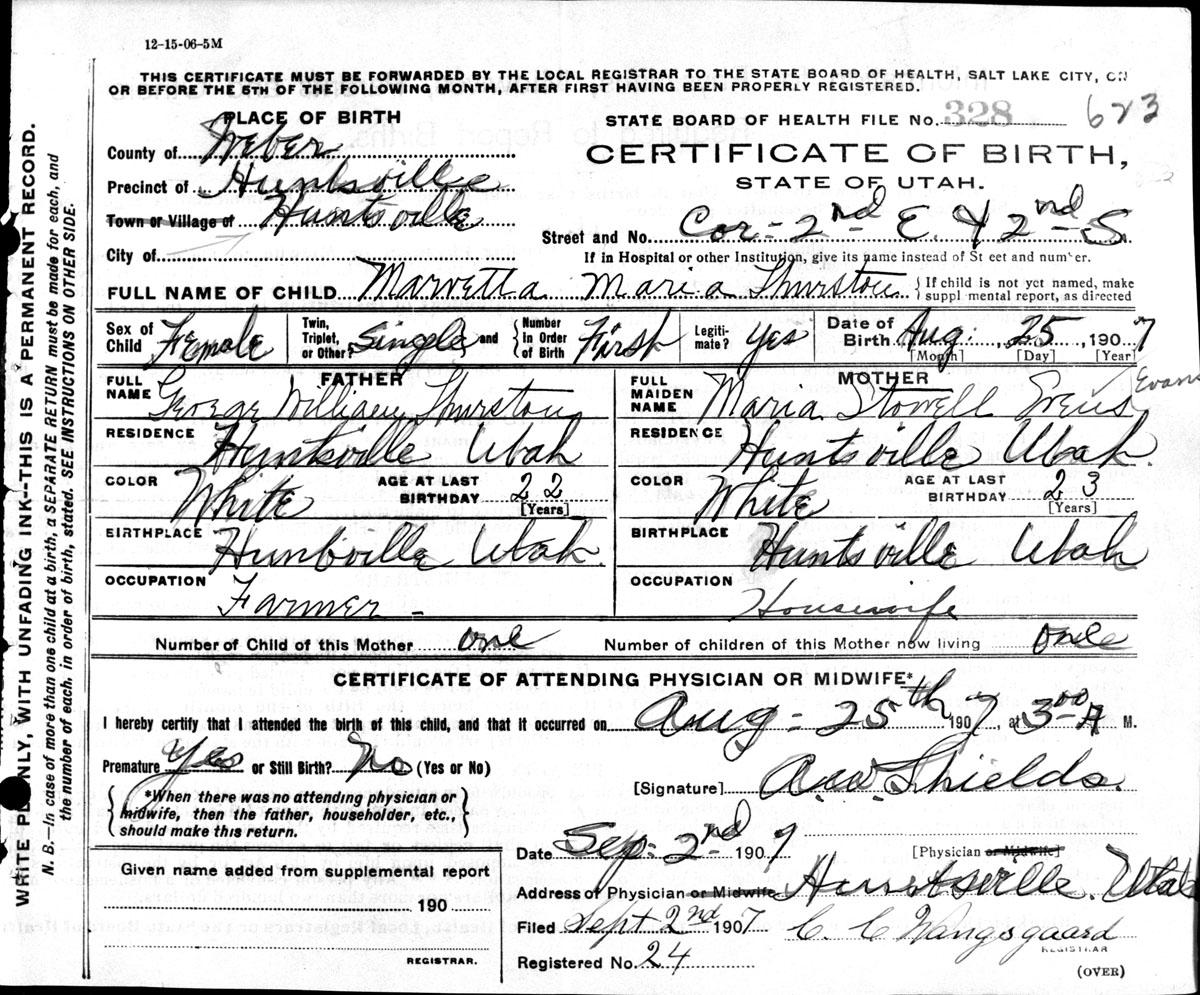 12-15-06-5M
THIS CERTIFICATE MUST BE FORWARDED BY THE LOCAL REGISTRAR TO THE STATE BOARD OF HEALTH, SALT LAKE CITY, ON
OR BEFORE THE 5TH OF THE FOLLOWING MONTH, AFTER FIRST HAVING BEEN PROPERLY REGISTERED.
WRITE PLAINLY, WITH UNFADING INK--THIS IS A PERMANENT RECORD.
N. B.--In case of more than one child at a birth, a SEPARATE RETURN must be made for each, and
the number of each, in order of birth, stated. SEE INSTRUCTIONS ON OTHER SIDE.
PLACE OF BIRTH
County of Weber
Precinct of Huntsville
Town or Village of Huntsville
City of
STATE BOARD OF HEALTH FILE NO. 328 623
CERTIFICATE OF BIRTH,
STATE OF UTAH.
Street and No. Cor - 2nd E. & 2nd S.
If in Hospital or other Institution, give its name instead of St eet and number.
FULL NAME OF CHILD Marvetta Maria Thurston { If child is not yet named, make
suppl mental report, as directed
Sex of Child Female
Twin, Triplet, or Other? Single and { Number In Order of Birth First
Legiti-mate? Yes
Date of Birth Aug. 25, 1907
[Month] [Day] [Year]
FATHER
FULL NAME George William Thurston
RESIDENCE Huntsville Utah
COLOR White AGE AT LAST BIRTHDAY 22
[Years]
BIRTHPLACE Huntsville Utah.
OCCUPATION Farmer -
MOTHER
FULL MAIDEN NAME Maria Stowell Evens Evans
RESIDENCE Huntsville Utah.
COLOR White AGE AT LAST BIRTHDAY 23
[Years]
BIRTHPLACE Huntsville Utah
OCCUPATION Housewife
Number of Child of this Mother one Number of children of this Mother now living one
CERTIFICATE OF ATTENDING PHYSICIAN OR MIDWIFE*
I hereby certify that I attended the birth of this child, and that it occurred on Aug - 25th 1907, at 3:00 A M.
Premature Yes or Still Birth? No (Yes or No)
{ *When there was no attending physician or
midwife, then the father, householder, etc.,
should make this return. }
[Signature] A.W. Shields.
Date Sep. 2nd 1907 [Physician or Midwife]
Given name added from supplemental report
190
REGISTRAR.
Address of Physician or Midwife Huntsville. Utah
Filed Sept 2nd 1907 C. C. Wangsgaard
REGISTRAR
Registered No. 24
(OVER)